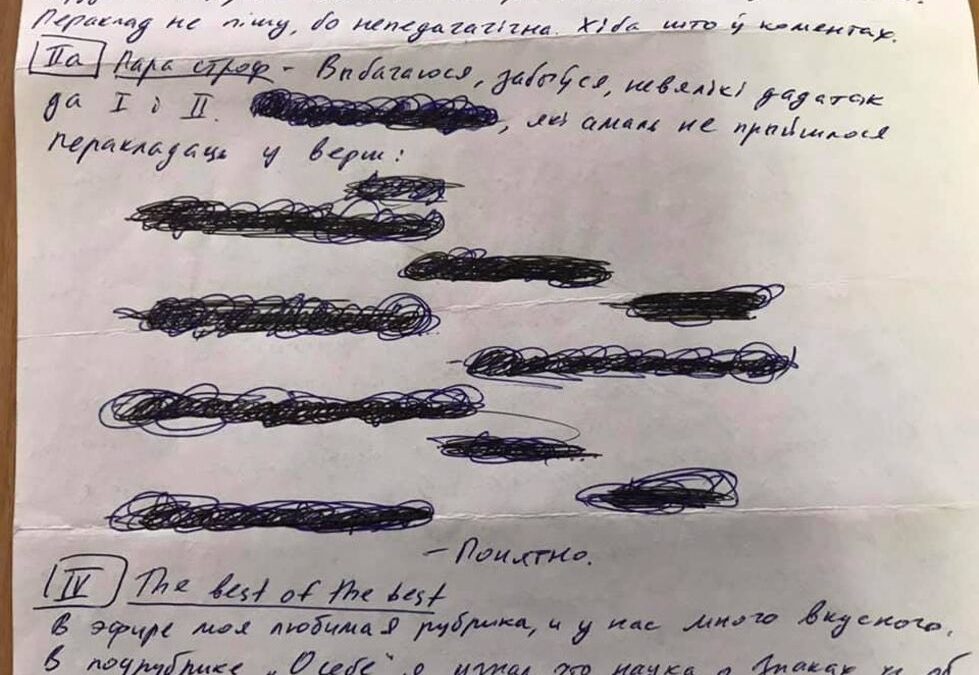 Пераклад не пішу, бо непедагагічна. Хіба што ў каментах.
IIa Пара строф - Выбачаюся, забыўся, невялікі дадатак
да I і II. , які амаль не прыйшлося
перакладаць у верш:
- Понятно.
IV The best of the best
В эфире моя любимая рубрика, и у нас много вкусного.
В подрубрике „О себе" я узнал, что наука о знаках